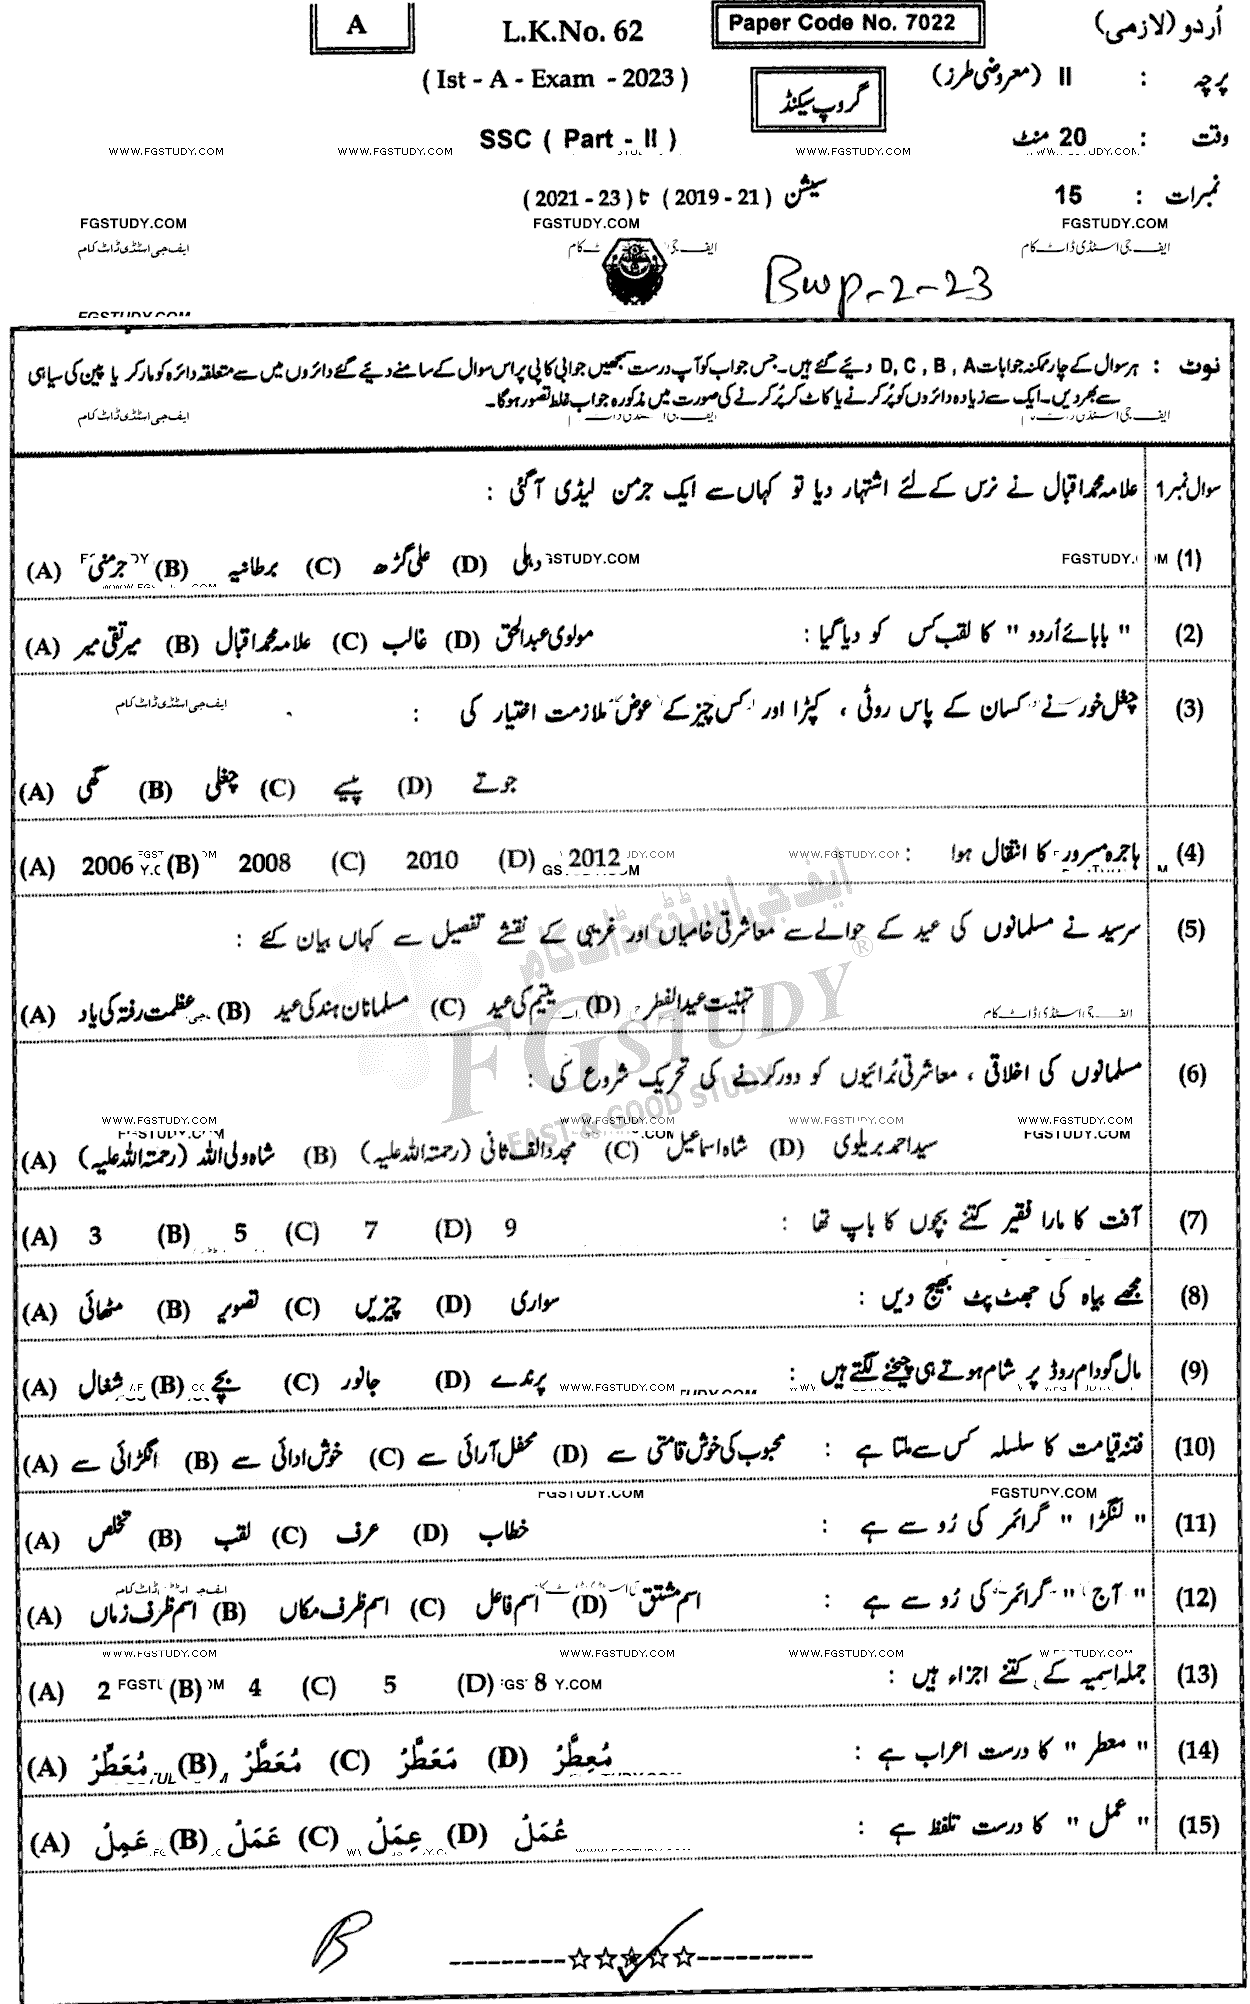 A
L.K.No. 62
Paper Code No. 7022
اُردو (لازمی)
(Ist - A - Exam - 2023)
گروپ سیکنڈ
پرچہ : II (معروضی طرز)
SSC ( Part - II )
وقت : 20 منٹ
WWW.FGSTUDY.COM WWW.FGSTUDY.COM WWW.FGSTUDY.COM
سیشن (2019 - 21) تا (2021 - 23)
نمبرات : 15
FGSTUDY.COM FGSTUDY.COM FGSTUDY.COM
ایف جی اسٹڈی ڈاٹ کام
Bwp-2-23
نوٹ : ہر سوال کے چار ممکنہ جوابات D, C, B, A دیئے گئے ہیں۔ جس جواب کو آپ درست سمجھیں جوابی کاپی پر اس سوال کے سامنے دیئے گئے دائروں میں سے متعلقہ دائرہ کو مارکر یا پین کی سیاہی
سے بھر دیں۔ ایک سے زیادہ دائروں کو پُر کرنے یا کاٹ کر پُر کرنے کی صورت میں مذکورہ جواب غلط تصور ہوگا۔
سوال نمبر 1 علامہ محمد اقبال نے نرس کے لئے اشتہار دیا تو کہاں سے ایک جرمن لیڈی آ گئی :
(1) (A) جرمنی (B) برطانیہ (C) علی گڑھ (D) دہلی
(2) " بابائے اُردو " کا لقب کس کو دیا گیا : (A) میر تقی میر (B) علامہ محمد اقبال (C) غالب (D) مولوی عبدالحق
(3) چغل خور نے کسان کے پاس روٹی ، کپڑا اور کس چیز کے عوض ملازمت اختیار کی :
(A) گھی (B) چغلی (C) پیسے (D) جوتے
(4) ہاجرہ مسرور کا انتقال ہوا : (A) 2006 (B) 2008 (C) 2010 (D) 2012
(5) سرسید نے مسلمانوں کی عید کے حوالے سے معاشرتی خامیاں اور غریبی کے نقشے تفصیل سے کہاں بیان کئے :
(A) عظمت رفتہ کی یاد (B) مسلمانان ہند کی عید (C) یتیم کی عید (D) تہنیت عید الفطر
(6) مسلمانوں کی اخلاقی ، معاشرتی بُرائیوں کو دور کرنے کی تحریک شروع کی :
(A) شاہ ولی اللہ (رحمتہ اللہ علیہ) (B) مجدد الف ثانی (رحمتہ اللہ علیہ) (C) شاہ اسماعیل (D) سید احمد بریلوی
(7) آفت کا مارا فقیر کتنے بچوں کا باپ تھا : (A) 3 (B) 5 (C) 7 (D) 9
(8) مجھے بیاہ کی جھٹ پٹ بھیج دیں : (A) مٹھائی (B) تصویر (C) چیزیں (D) سواری
(9) مال گودام روڈ پر شام ہوتے ہی چیخنے لگتے ہیں : (A) شغال (B) بچے (C) جانور (D) پرندے
(10) فتنۂ قیامت کا سلسلہ کس سے ملتا ہے : (A) انگڑائی سے (B) خوش ادائی سے (C) محفل آرائی سے (D) محبوب کی خوش قامتی سے
(11) " لنگڑا " گرائمر کی رُو سے ہے : (A) تخلص (B) لقب (C) عرف (D) خطاب
(12) " آج " گرائمر کی رُو سے ہے : (A) اسم ظرف زماں (B) اسم ظرف مکاں (C) اسم فاعل (D) اسم مشتق
(13) جملہ اسمیہ کے کتنے اجزاء ہیں : (A) 2 (B) 4 (C) 5 (D) 8
(14) " معطر " کا درست اعراب ہے : (A) مُعَطِّرُ (B) مُعَطَّرُ (C) مَعَطَّرُ (D) مُعِطَّرُ
(15) " عمل " کا درست تلفظ ہے : (A) عَمِلُ (B) عَمَلُ (C) عِمَلُ (D) عُمَلُ
ایف جی اسٹڈی ڈاٹ کام
FGSTUDY®
FAST & GOOD STUDY
B